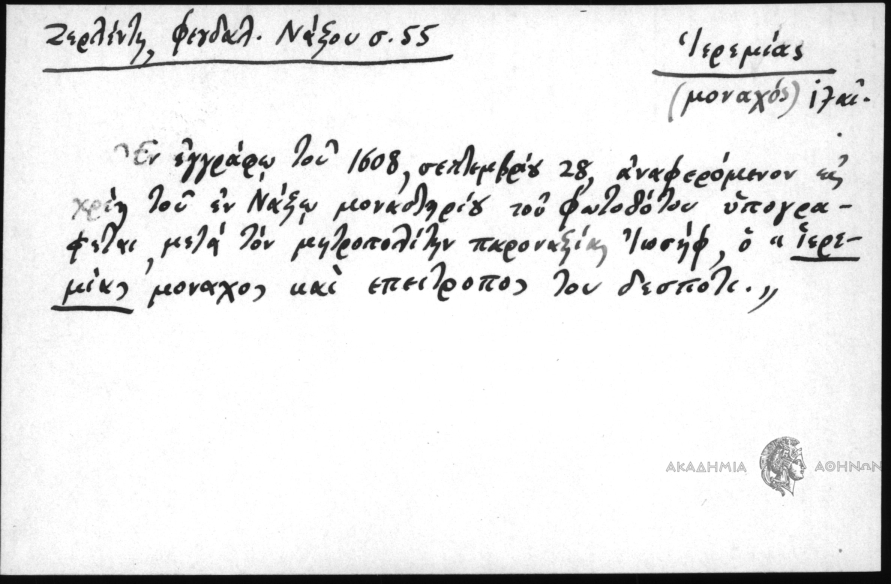 Ζερλέντη, φευδαλ. Νάξου σ. 55
Ἱερεμίας
(μοναχός)
Ἐν ἐγγράφῳ τοῦ 1608, σεπτεμβρίου 28, ἀναφερόμενον εἰς
τοῦ ἐν Νάξῳ μοναστηρίου τοῦ φωτοδότου ὑπογρά-
φεται, μετά τὸν μητροπολίτην παροναξίας Ἰωσήφ, ὁ "ἱερε-
μίας μοναχος καὶ επειτροπος του δεσπότι."
ΑΚΑΔΗΜΙΑ ΑΘΗΝΩΝ